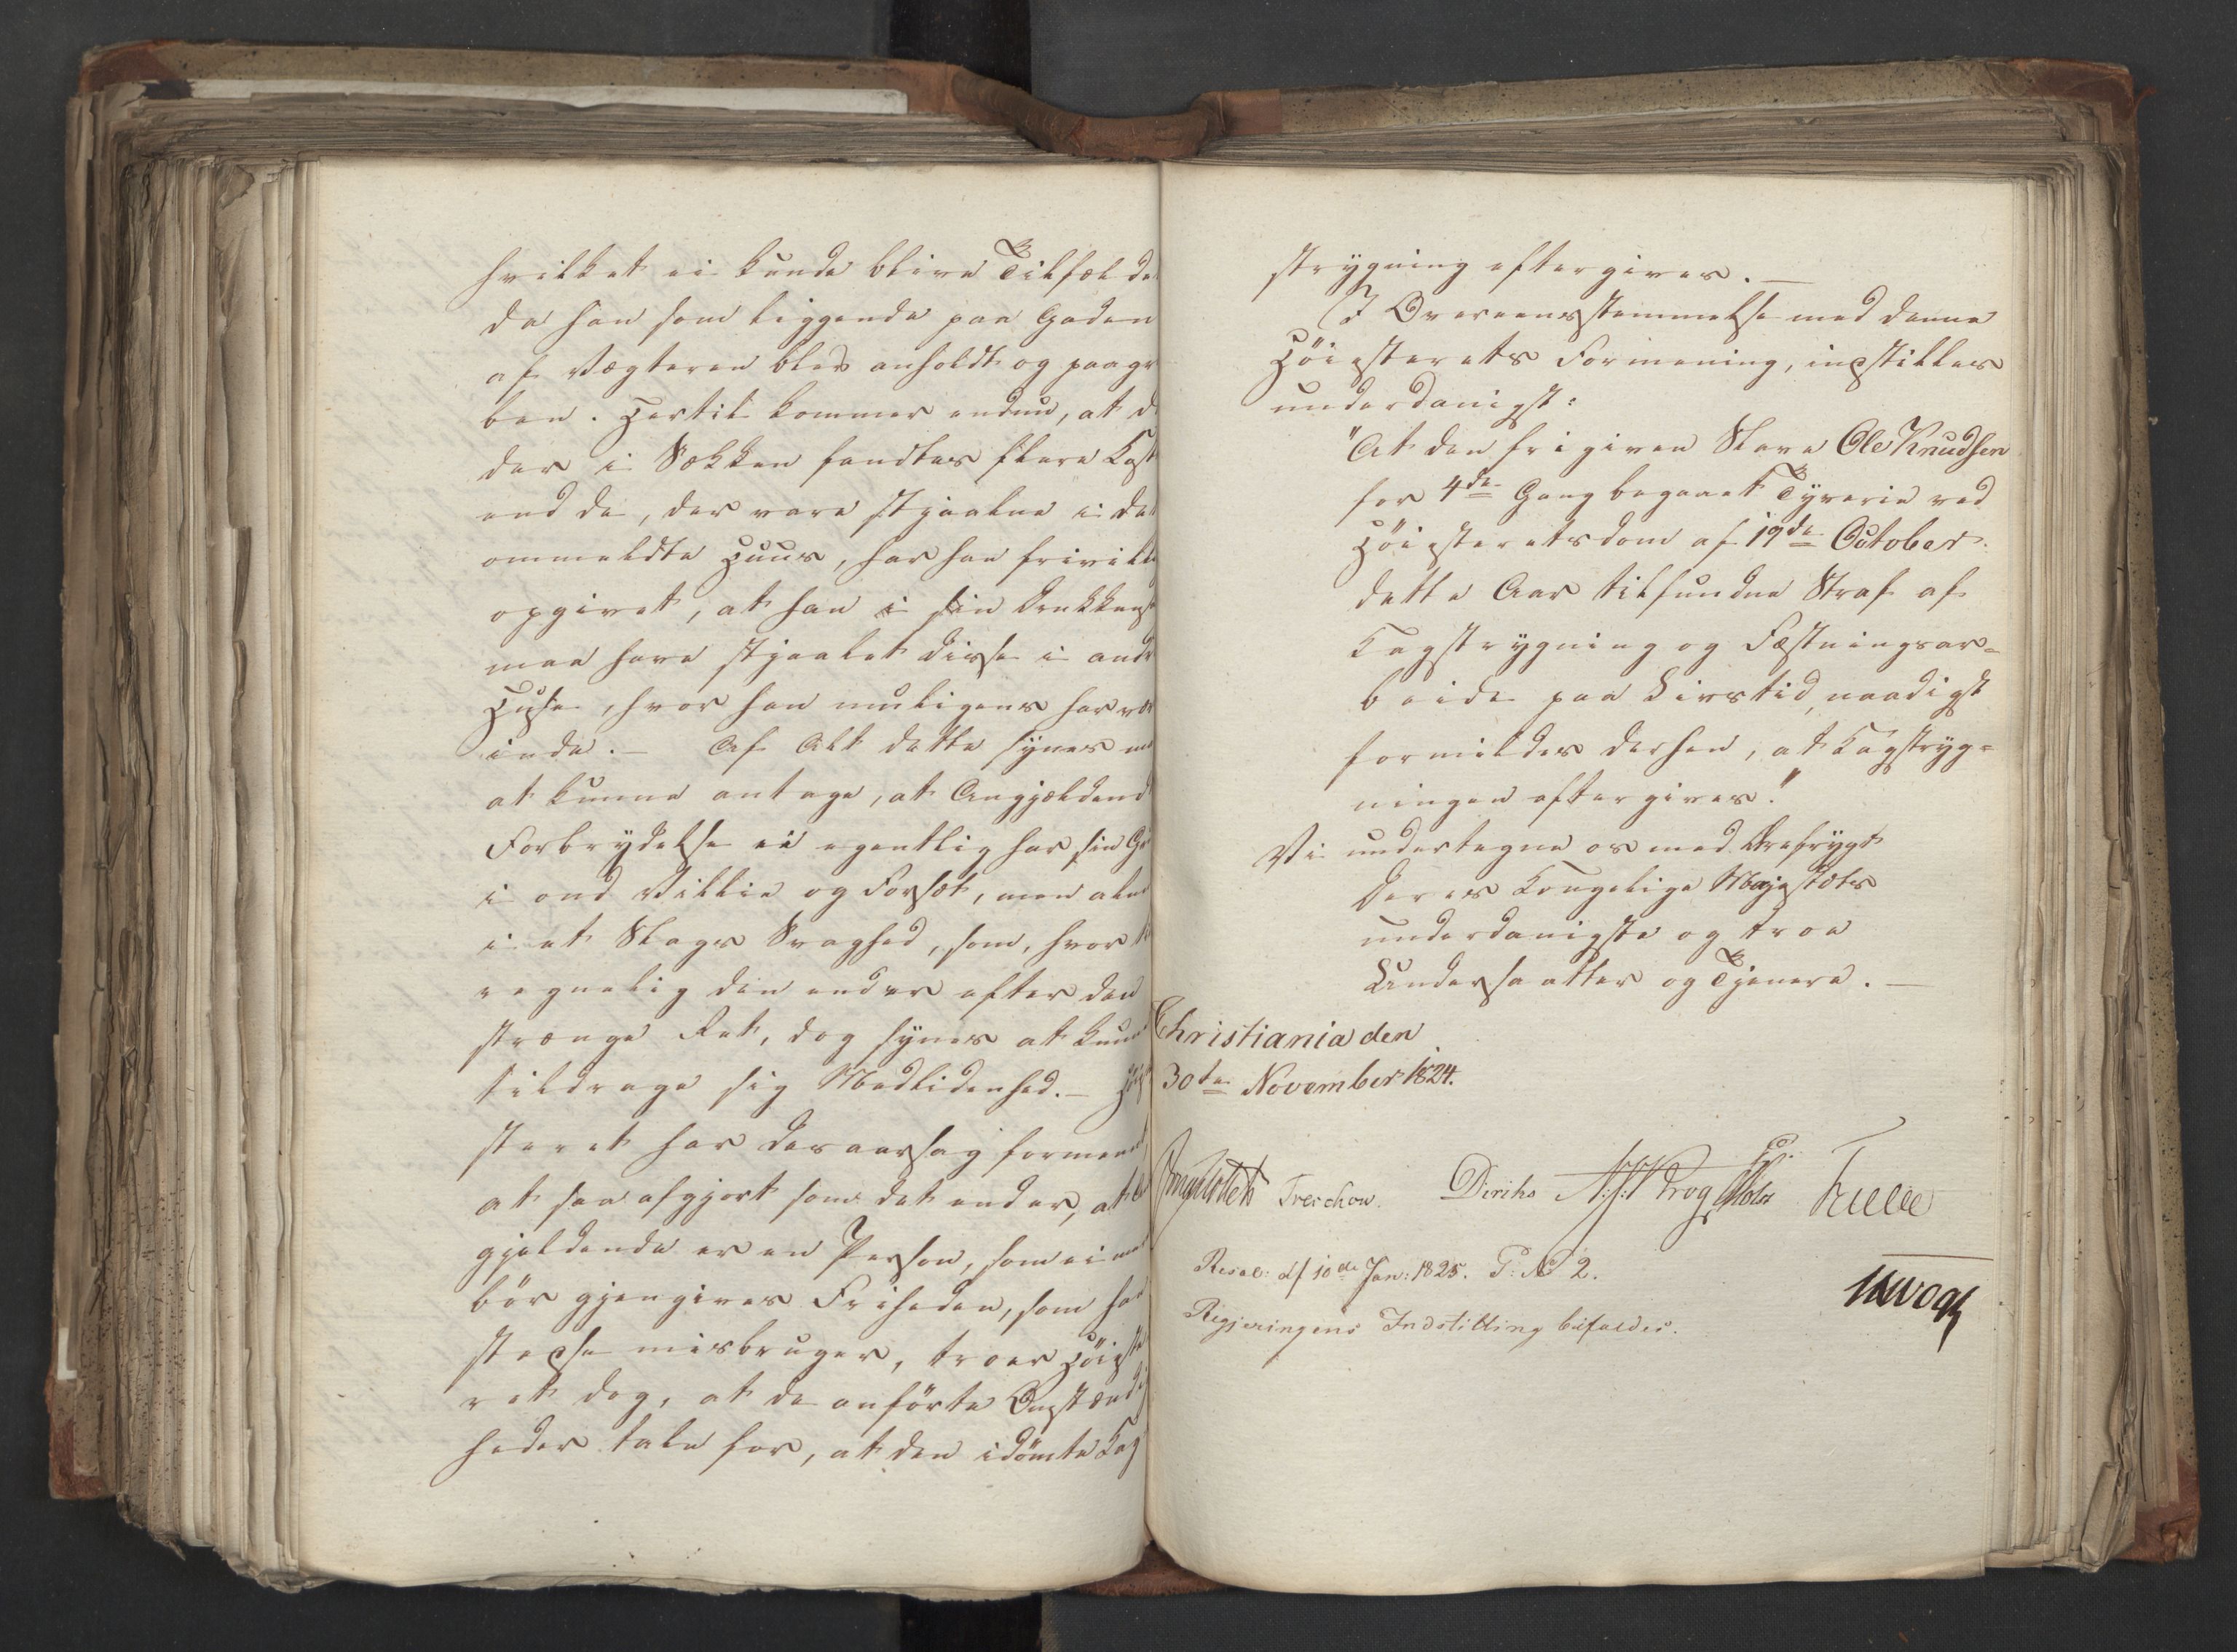 hvilket ei kunde blive Tilfældet
da han som liggende paa Gaden
af Vægteren blev anholdt og paagre
ben. Hertil kommer endnu, at d
der i Sækken fandtes flere Kost
end de, der vare stjaalne i det
ommeldte Huus, har han frivilli
opgivet, at han i sin Drukkensk
maa have stjaalet disse i andr
Huse, hvor han muligens har vær
inde. – Af Alt dette synes m
at kunne antage, at Angjældend
Forbrydelse ei egentlig har sin Gr
i ond Villie og Forsæt, men alene
i et Slags Svaghed, som, hvor til
regnelig den end er efter den
strænge Ret, dog synes at kunne
tildrage sig Medlidenhed. – Høie
steret har desaarsag formeent
at saa afgjort som det end er, at
gjældende er en Person, som ei meer
bør gjengives Friheden, som han
stedse misbruger, troer Høieste
ret dog, at de anførte Omstændig
heder tale for, at den idømte Kag
strygning eftergives. —
I Overeensstemmelse med denne
Høiesterets Formening, indstilles
underdanigst:
"At den frigiven Slave Ole Knudsen
for 4de Gang begaaet Tyverie ved
Høiesteretsdom af 19de October
dette Aar tilfundne Straf af
Kagstrygning og Fæstningsar=
beide paa Livstid, naadigst
formildes derhen, at Kagstryg=
ningen eftergives."
Vi undertegne os med Ærefrygt
Deres Kongelige Majestæts
underdanigste og troe
Undersaatter og Tjenere. —
Christiania den
30te November 1824.
Treschow. Diriks Krog Holst
Resol: af 10de Jan: 1825. P: № 2.
Regjeringens Indstilling bifaldes.